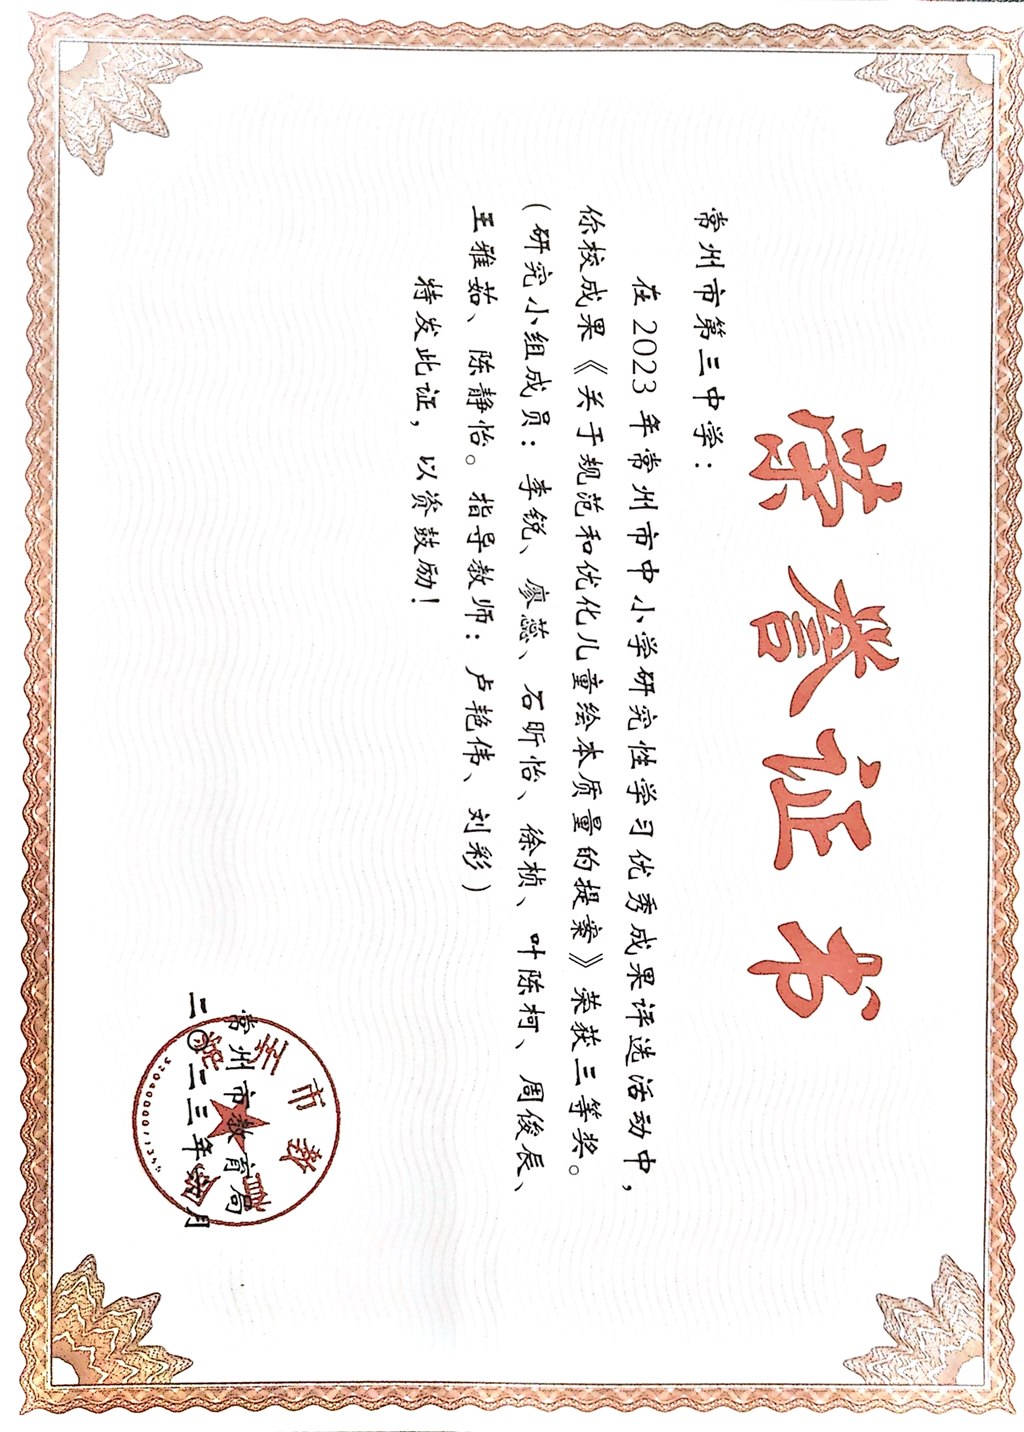 荣誉证书
常州市第三中学：
在2023年常州市中小学研究性学习优秀成果评选活动中，
你校成果《关于规范和优化儿童绘本质量的提案》荣获三等奖。
（研究小组成员：李锐、廖蕊、石昕怡、徐桢、叶陈柯、周俊辰、
王雅茹、陈静怡。指导教师：卢艳伟、刘彩）
特发此证，以资鼓励！
常州市教育局
二〇二三年四月
常州市教育局